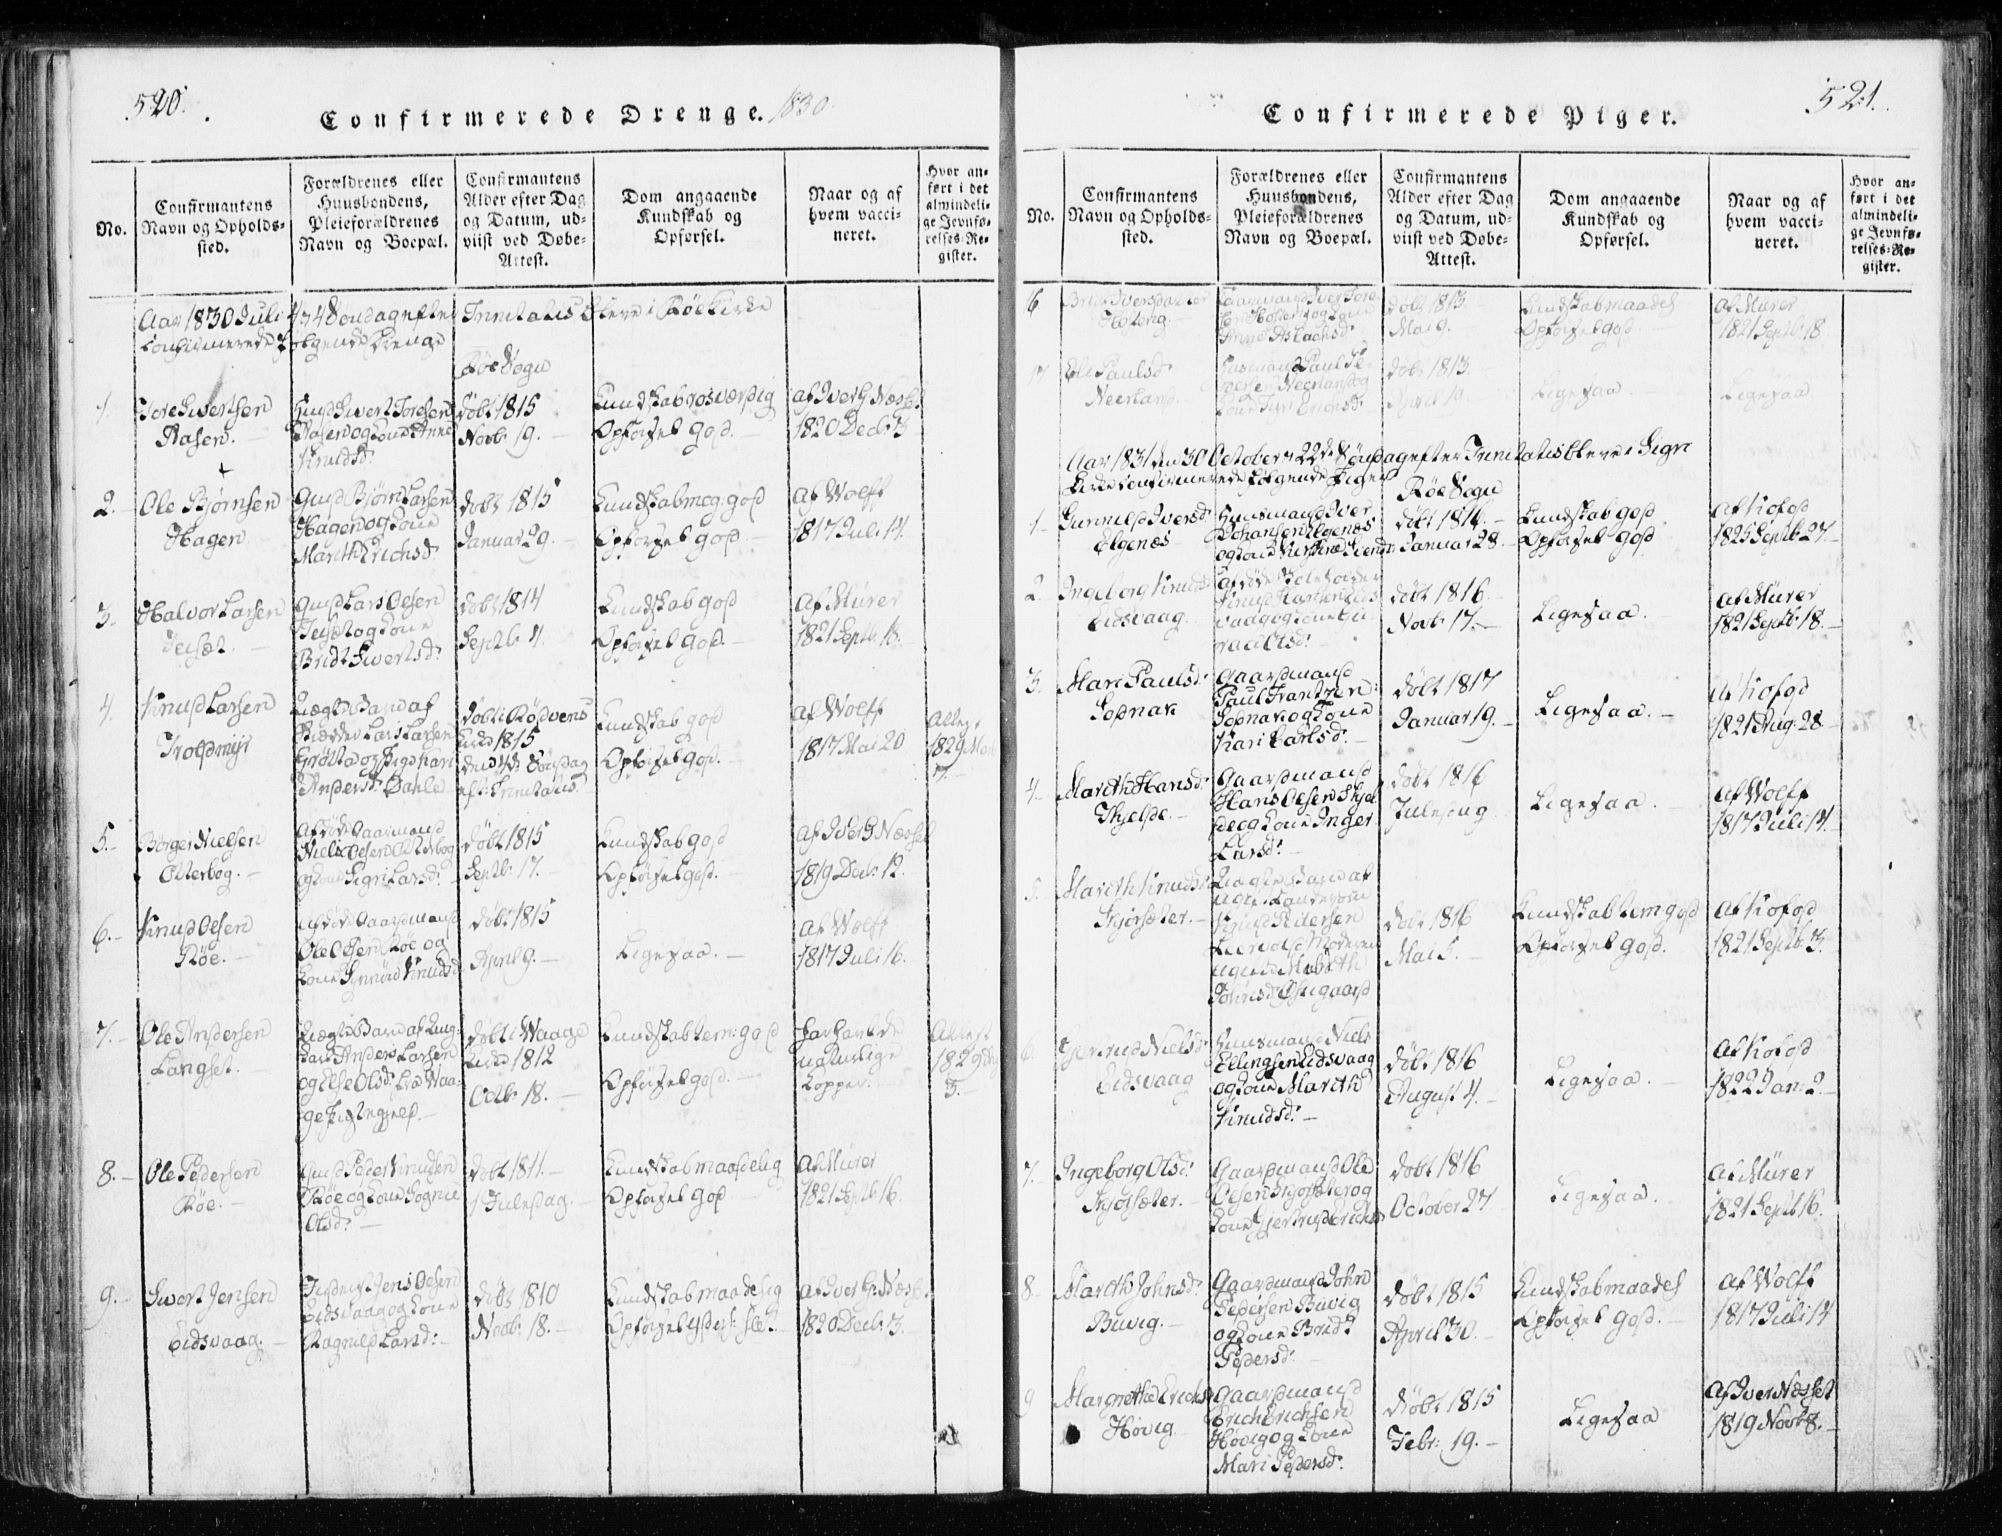 520.
Confirmerede Drenge. 1830.
No.
Confirmantens
Navn og Opholds-
sted.
Forældrenes eller
Huusbondens,
Pleieforældrenes
Navn og Boepæl.
Confirmantens
Alder efter Dag
og Datum, ud-
viist ved Døbe-
Attest.
Dom angaaende
Kundskab og
Opførsel.
Naar og af
hvem vacci-
neret.
Hvor an-
ført i det
almindeli-
ge Jevnfø-
relses-Re-
gister.
Aar 1830 Juli 4 4 Søndag efter Trinitatis bleve i Røe Kirke
Confirmerede følgende Drenge
Røe Sogn
1.
Tore Iwertsen
Aasen.
Iwert Toresen
Aasen og Kone Anne
Knudsd:
døbt 1815
Novb: 19.
Kundskab rosværdig
Opførsel god.
af Iver G. Næsset
1820 Decb: 3
2.
Ole Bjørnsen
Hagen
Bjørn Larsen
Hagen og Kone
Marith Erichsd:
døbt 1815
Januar 29.
Kundskab meg: god
Opførsel god.
af Wolff
1817 Juli 14.
3.
Halvor Larsen
Lars Olsen
og Kone
Bridt Iwertsd:
døbt 1814
Septb: 4.
Kundskab god
Opførsel god.
af Mürer
1821 Septb: 16.
4.
Knud Larsen
Troldmyr
Uægte Barn af
Lars Larsen
og Pige Kari
Andersd: Dahle
døbt i Rødvens
Kirke 1815
den 4de Søndag
eft: Trinitatis
Kundskab god
Opførsel god.
af Wolff
1817 Mai 20
Attest
1829
5.
Børge Nielsen
Otterbog.
Afdøde Gaardmand
Niels Olsen Otterbog
og Kone Sigri Larsd:
døbt 1815
Septb: 17.
Kundskab god
Opførsel god.
af Iver G. Næsset
1819 Decb: 12.
6.
Knud Olsen
Røe.
Afdøde Gaardmand
Ole Olsen Røe og
Kone Synnøve Knudsd
døbt 1815
April 9.
Ligesaa.
af Wolff
1817 Juli 16.
7.
Ole Andersen
Langset.
Uægte Barn af
Anders Larsen
og Else Olsd:
døbt i Waage
Kirke 1812
Octb: 18.
Kundskab tem: god
Opførsel god.
har havt de
naturlige
Kopper.
Attest
1829
3.
8.
Ole Pedersen
Røe.
Peder Knudsen
Røe og Kone
Olsd:
døbt 1811.
1 Juledag.
Kundskab maadelig
Opførsel god
af Mürer
1821 Septb: 16.
9.
Iwert Jensen
Eidsvaag.
Jens Olsen
Eidsvaag og Kone
Ragnild Larsd:
døbt 1810
Novb: 18.
Kundskab maadelig
Opførsel
af Iver G. Næsset
1820 Decb: 3.
521.
Confirmerede Piger.
No.
Confirmantens
Navn og Opholds-
sted.
Forældrenes eller
Huusbondens,
Pleieforældrenes
Navn og Boepæl.
Confirmantens
Alder efter Dag
og Datum, ud-
viist ved Døbe-
Attest.
Dom angaaende
Kundskab og
Opførsel.
Naar og af
hvem vacci-
neret.
Hvor an-
ført i det
almindeli-
ge Jevnfø-
relses-Re-
gister.
16
Brit Iversdatter
Holteng.
Gaardmand Iver Tore-
sen Holteng og Kone
Anne Aslachsd:
døbt 1813.
Mai 9.
Kundskab maadel
Opførsel god.
af Mürer
1821 Septb: 18
17
Eli Paulsd:
Neerland.
Huusmand Paul
Neerland og
Kone Erichsd:
døbt 1813.
April
Ligesaa.
Ligesaa.
Aar 1831 den 30 October 22de Søndag efter Trinitatis bleve i
Kirke confirmerede følgende Piger
Røe Sogn
1.
Gunnild Iversd:
Elgenæs
Huusmand Iver
Johansen Elgenæs
og Kone
døbt 1816.
Januar 28.
Kundskab god
Opførsel god
af Kofod
1825 Septb: 27.
2.
Ingeborg Knudsd:
Eidsvaag.
døbt 1816.
Novb: 17.
Ligesaa.
af Mürer
1821 Septb: 18.
3.
Mari Paulsd:
Sodnak
Gaardmand
Paul Frantzen
Sodnak og Kone
Kari Larsd:
døbt 1817
Januar 19.
Ligesaa.
af Kofod
1821 Aug: 28
4.
Marith Hansd:
Skjelde.
Gaardmand
Hans Olsen Skjel-
de og Kone Inger
Larsd:
døbt 1816
Juledag
Ligesaa.
af Wolff
1817 Juli 14.
5.
Marith Knudsd:
Skjorsæter.
Uægte Barn af
Knud
Moderen
Marith
Johnsd:
døbt 1816
Mai 5.
Kundskab tem: god
Opførsel god.
af Kofod
1821 Septb: 3.
6.
Gjertrud Nielsd:
Eidsvaag
Huusmand Niels
Ellingsen Eidsvaag
og Kone Marith
Knudsd:
døbt 1816
August 4.
Ligesaa.
af Kofod
1822 Jan: 2.
7.
Ingeborg Olsd:
Skjorsæter.
Gaardmand Ole
Olsen Skjorsæter og
Kone Gjertrud Erichsd
døbt 1816
October 27
Ligesaa.
af Mürer
1821 Septb: 16.
8.
Marith Johnsd:
Buvig.
Gaardmand John
Pedersen Buvig
og Kone Brit
Pedersd:
døbt 1815
April 30.
Kundskab maadel
Opførsel god.
af Wolff
1817 Juli 14
9
Margrethe Erichsd
Høvig
Gaardmand
Erich Erichsen
Høvig og Kone
Mari Pedersd:
døbt 1815
Febr: 19.
Ligesaa
af Iver Næsset
1819 Novb: 8.